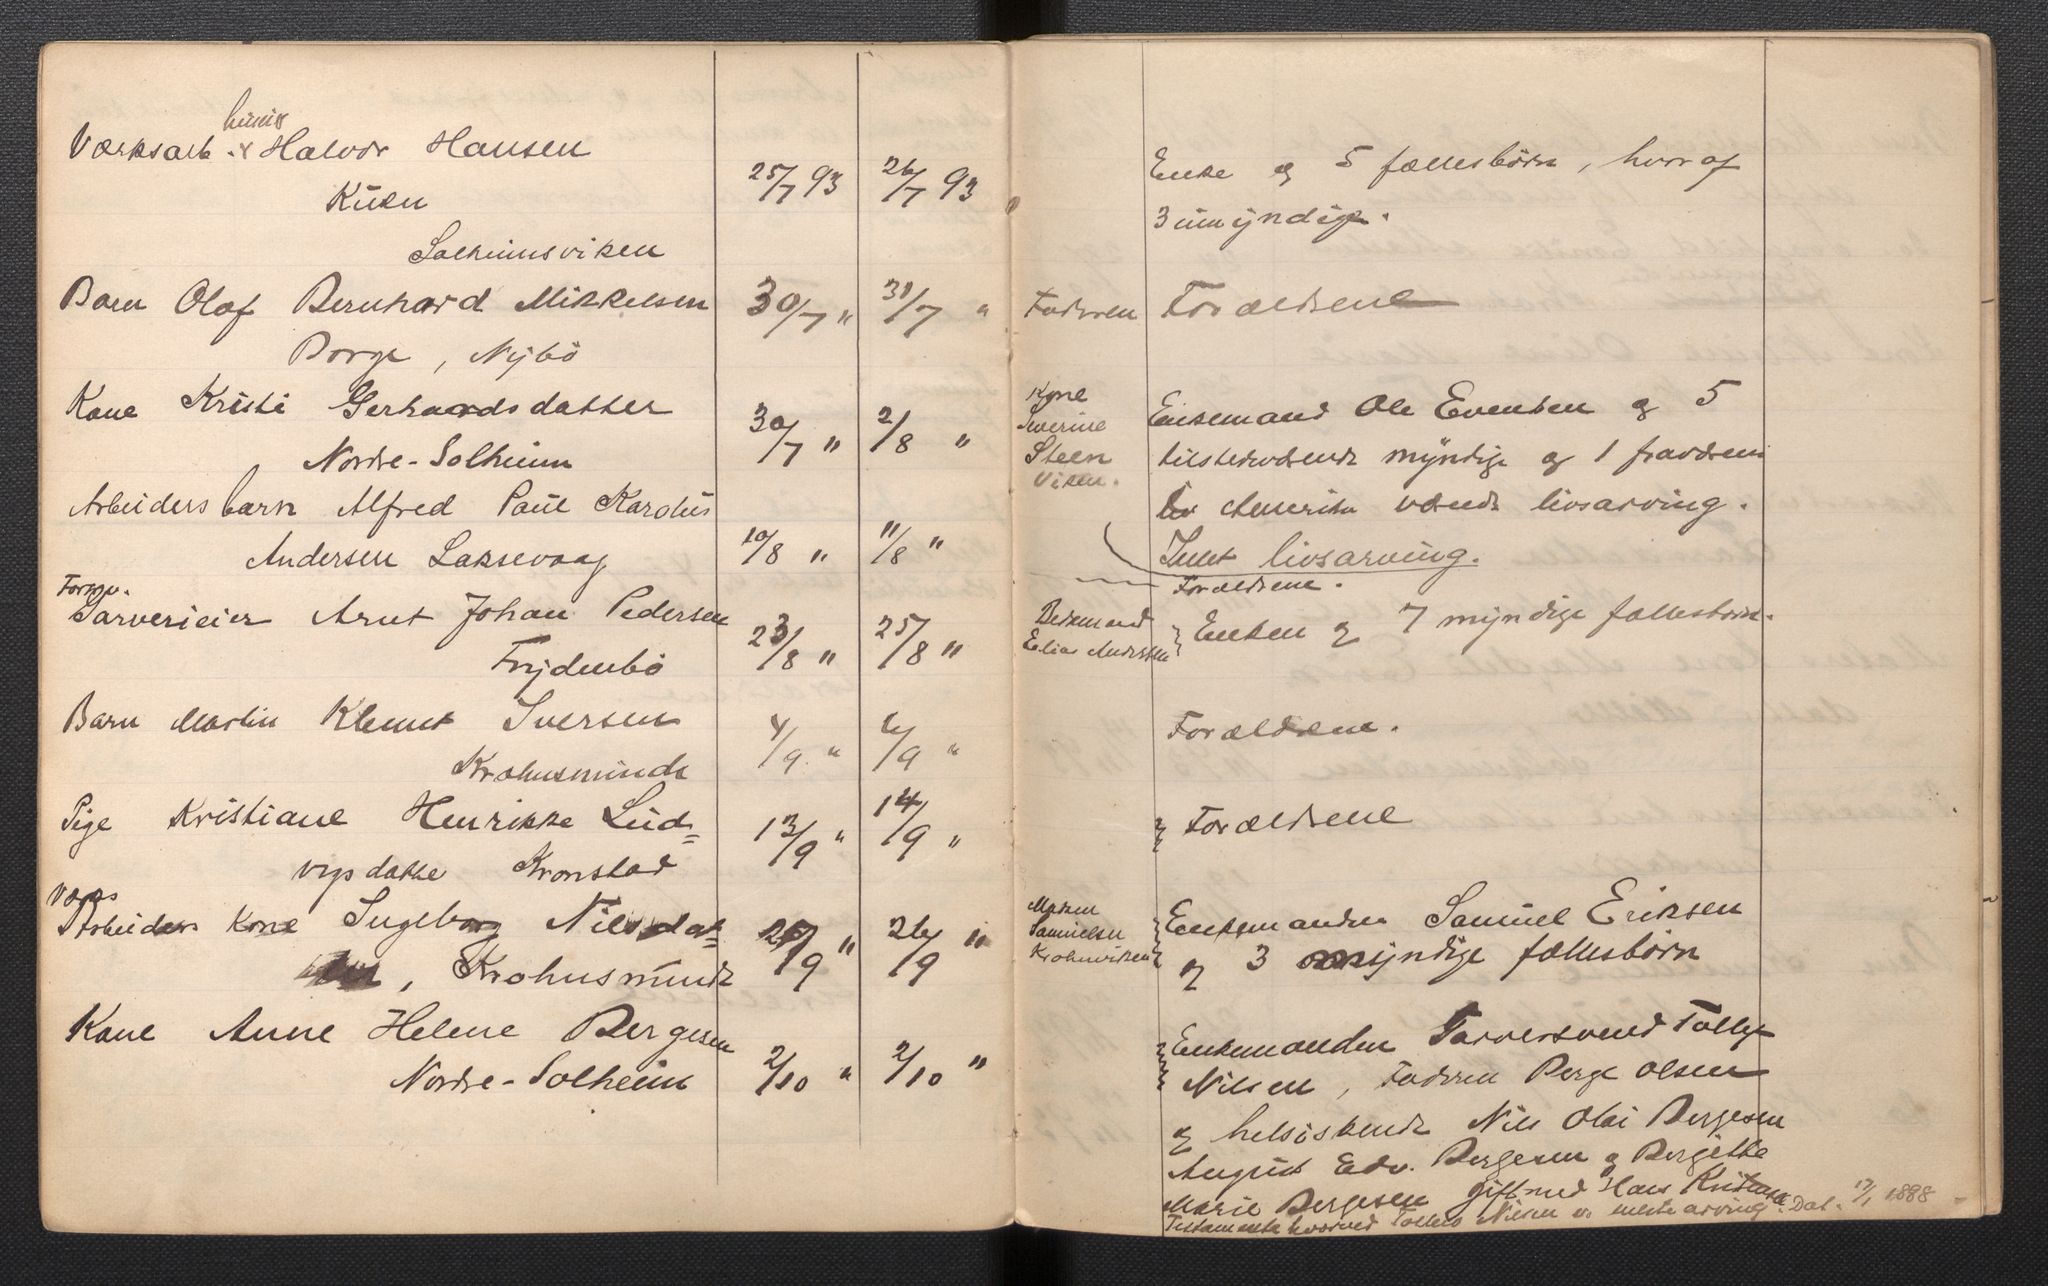 Værksarb. Halvor Hansen
25/7 93 26/7 93
Solheimsviken
Enke og 5 fællesbørn, hvoraf
3 umyndige.
Barn Olaf Bernhard Mikkelsen
30/7 " 31/7 "
Borge, Nybö
Faderen Forældrene
Kone Kristi Gerhardsdatter
30/7 " 2/8 "
Nordre-Solheim
Kone
Severine
Steen
Viken.
Enkemand Ole Evensen og 5
tilstedeværende myndige og 1 fraværende
Amerika værende livsarving.
Intet livsarving.
Arbeiders barn Alfred Paul Karolus
Andersen Laksevaag
10/8 " 11/8 "
Forældrene.
Forhv.
Garverieier Arnt Johan Pedersen
Frydenbö
23/8 " 25/8 "
Bedemand
Elias Andersen
Enken og 7 myndige fællesbörn.
Barn Martin Klemet Iversen
Krohnsminde
4/9 " 6/9 "
Forældrene.
Pige Kristiane Henrikke Lud=
vigsdatter Kronstad
13/9 " 14/9 "
Forældrene
Værks
Arbeiders kone Ingeborg Nilsdat=
, Krohnsminde
25/9 " 26/9 "
Maken
Samuelsen
Krohnviken
Enkemanden Samuel Eriksen
og 3 myndige fællesbörn
Kone Anne Helene Bergesen
Nordre-Solheim
2/10 " 2/10 "
Enkemanden Garversvend Tollef
Nilsen, Faderen Berge Olsen
og helsöskende Nils Olai Bergesen
August Edv. Bergesen og Bergitte
Marie Bergesen gift med Hans Kristiansen
Testamente hvorved Tollef Nilsen er eneste arving. Dat. 17/1 1888